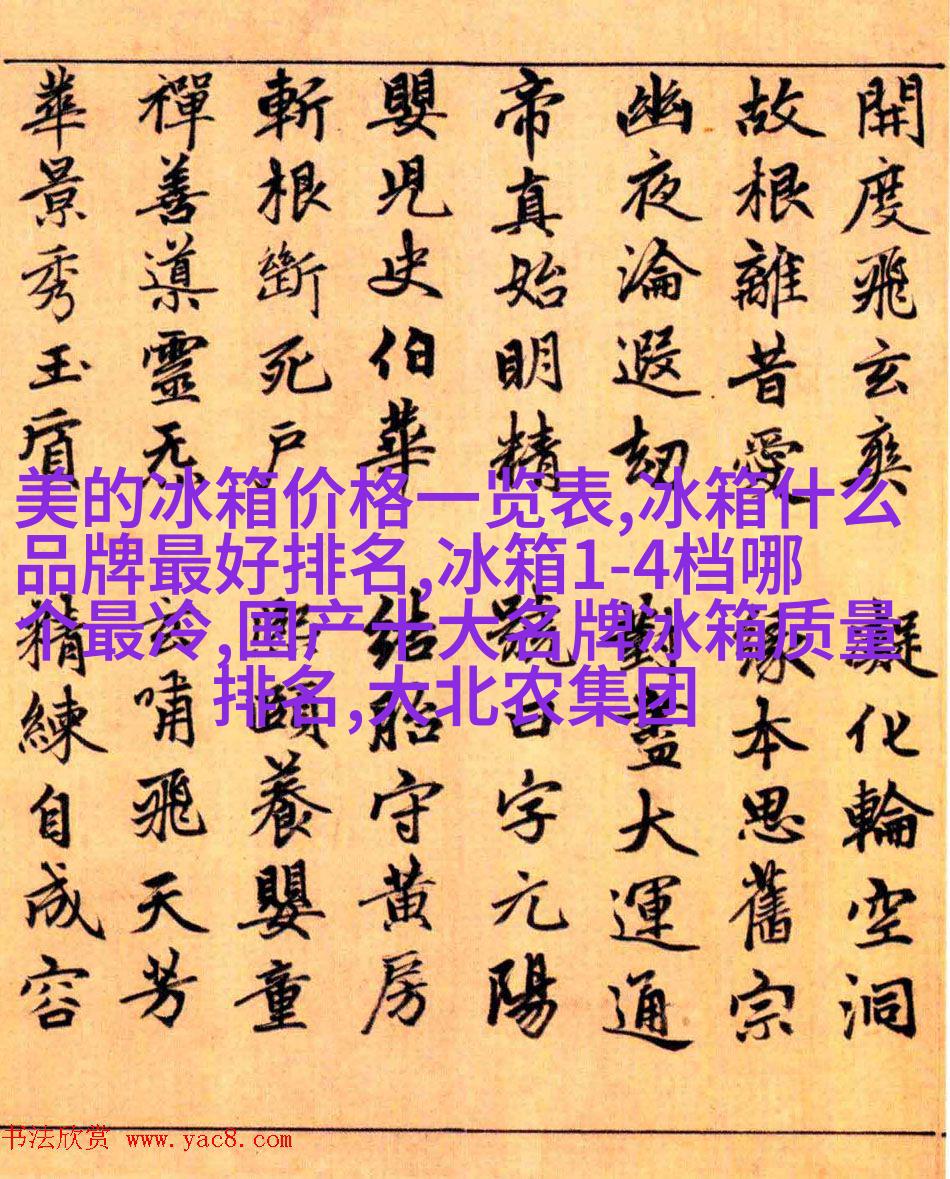 開度飛玄爽 凝化輪空洞
故根離昔愛 緣本思舊宗
幽夜淪遐劫 對盡大運通
帝真始明精 號曰字元陽
嬰兒史伯華 結胎守黃房
斬根斷死戶 頤養嬰童
禪善導靈炁 玄嘯飛天芳
華景秀玉質 精練自成容
美的冰箱价格一览表,冰箱什么
品牌最好排名,冰箱1-4档哪
个最冷,国产十大名牌冰箱质量
排名,大北农集团
书法欣赏 www.yac8.com